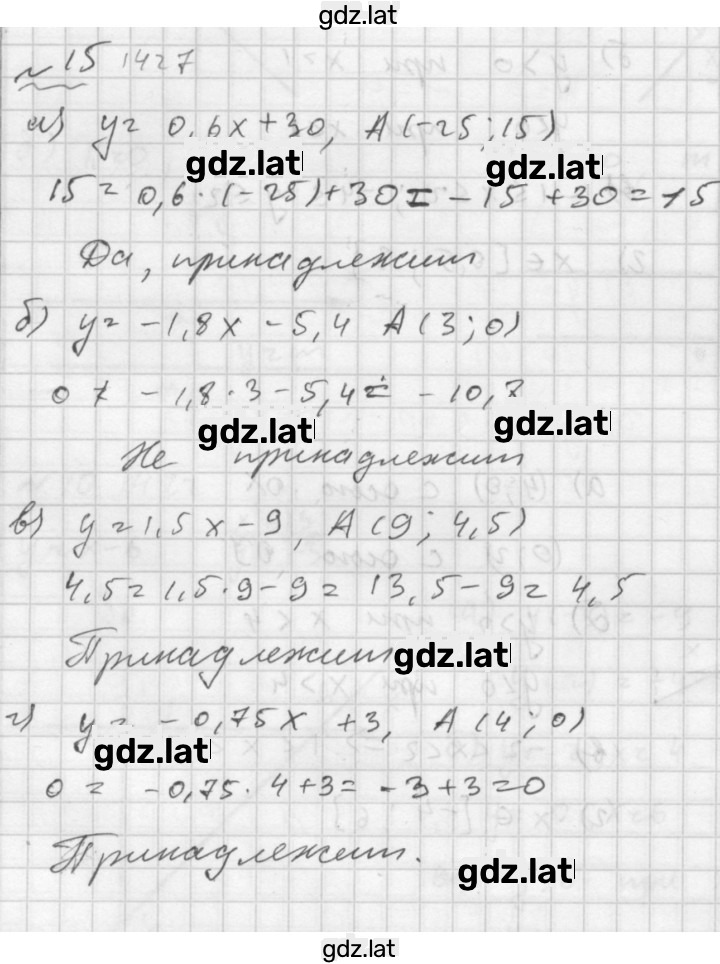 gdz.lat
№ 15 1427
а) y = 0.6x + 30, A (-25; 15)
gdz.lat gdz.lat
15 = 0,6 · (-25) + 30 = -15 + 30 = 15
Да, принадлежит
б) y = -1,8x - 5,4 A (3; 0)
0 ≠ -1,8 · 3 - 5,4 = -10,7
gdz.lat gdz.lat
Не принадлежит
в) y = 1,5x - 9, A (9; 4,5)
4,5 = 1,5 · 9 - 9 = 13,5 - 9 = 4,5
Принадлежит gdz.lat
г) y = -0,75x + 3, A (4; 0)
gdz.lat
0 = -0,75 · 4 + 3 = -3 + 3 = 0
Принадлежит.
gdz.lat
gdz.lat